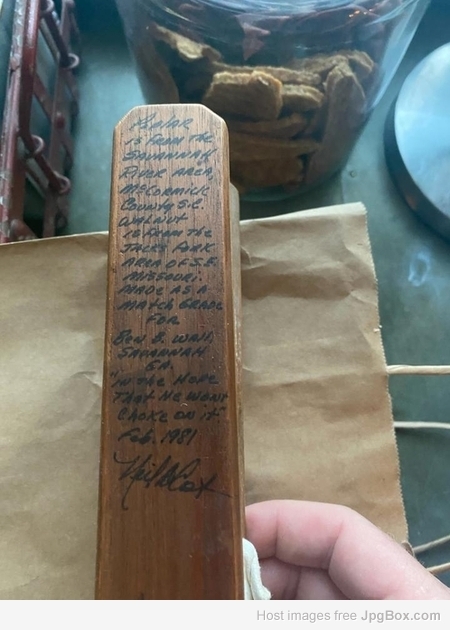 Kular
is From the
Savannah
River Area
McCormick
County S.C.
Walnut
is From the
Jacks Fork
Area of S.E.
Missouri.
Made as a
Match Grade
For
Ben B. Wall
Savannah
GA.
"in the Hope
That he wont
Choke on it"
Feb. 1981
Neil Cost
Host images free JpgBox.com